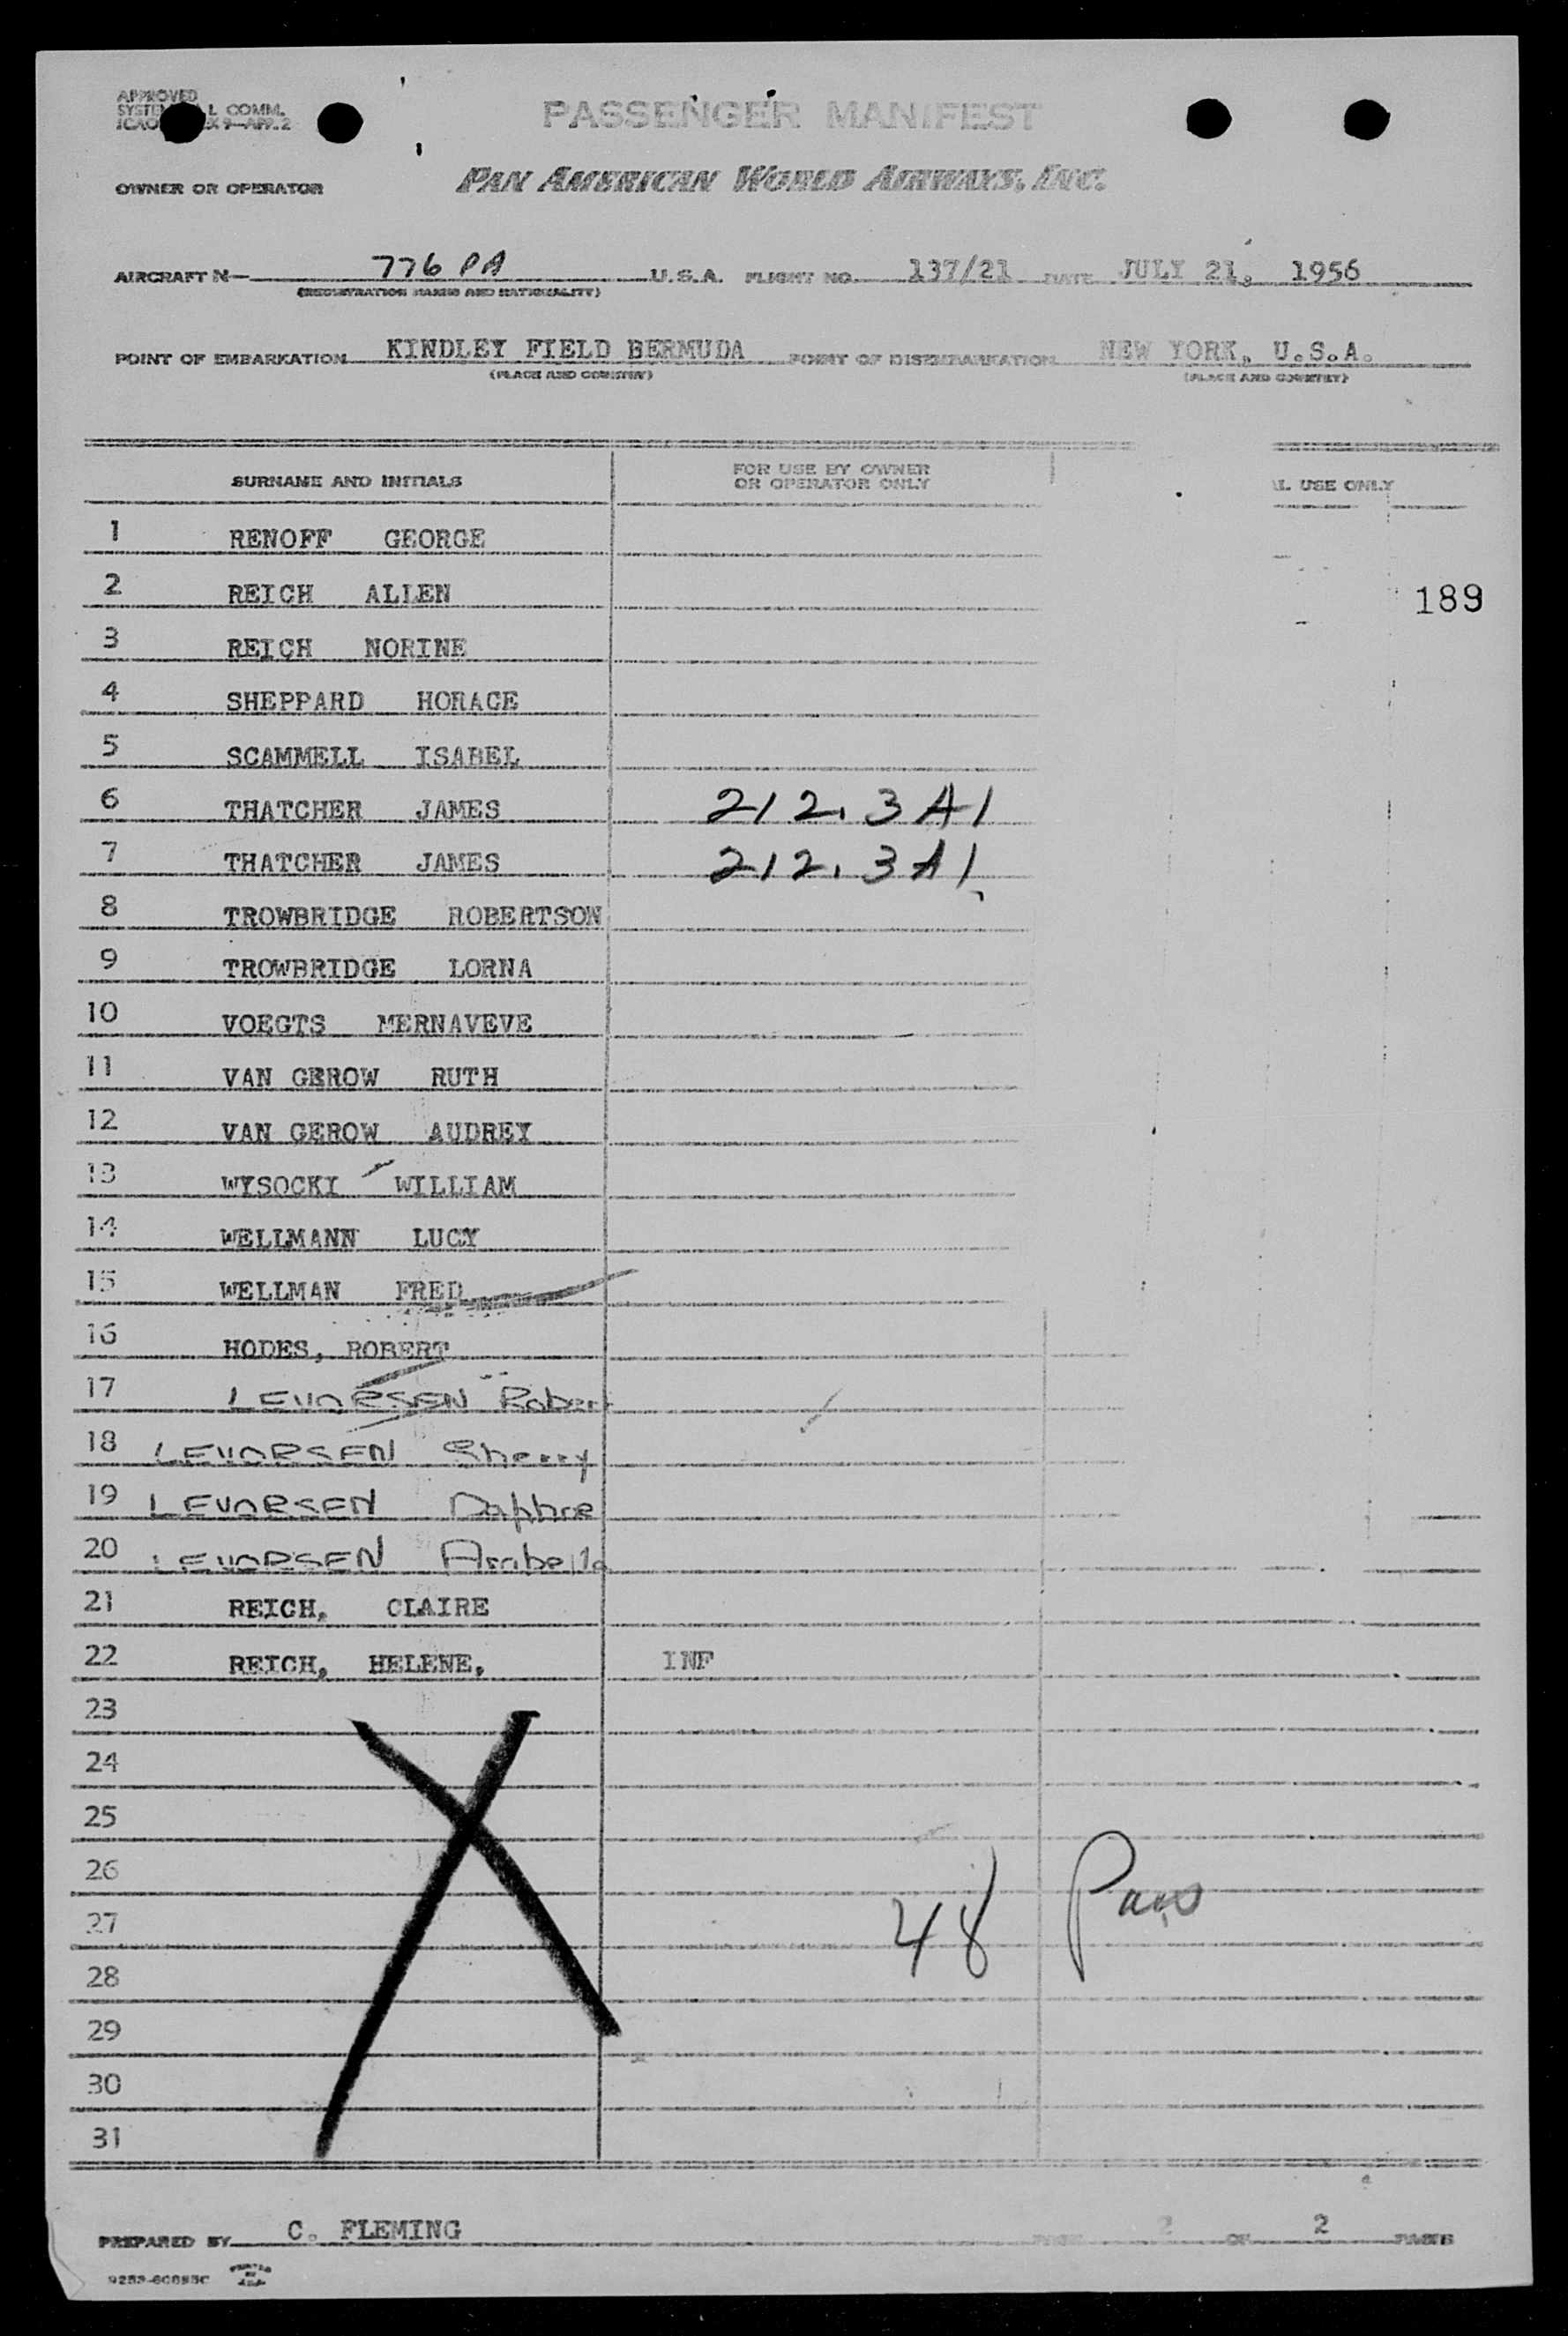 APPROVED PASSENGER MANIFEST
COMM.
ICAO 9-APP. 2
OWNER OR OPERATOR PAN AMERICAN WORLD AIRWAYS, INC.
AIRCRAFT N- 776 PA U.S.A. FLIGHT NO. 137/21 DATE JULY 21, 1956
(REGISTRATION MARKS AND NATIONALITY)
POINT OF EMBARKATION KINDLEY FIELD BERMUDA POINT OF DISEMBARKATION NEW YORK, U.S.A.
(PLACE AND COUNTRY) (PLACE AND COUNTRY)
SURNAME AND INITIALS FOR USE BY OWNER OR OPERATOR ONLY L USE ONLY
1 RENOFF GEORGE
2 REICH ALLEN 189
3 REICH NORINE
4 SHEPPARD HORACE
5 SCAMMELL ISABEL
6 THATCHER JAMES 212.3A1
7 THATCHER JAMES 212.3A1
8 TROWBRIDGE ROBERTSON
9 TROWBRIDGE LORNA
10 VOEGTS MERNAVEVE
11 VAN GEROW RUTH
12 VAN GEROW AUDREY
13 WYSOCKI WILLIAM
14 WELLMANN LUCY
15 WELLMAN FRED
16 HODES, ROBERT
17 LEVORSEN Robert
18 LEVORSEN Sherry
19 LEVORSEN Daphne
20 LEVORSEN Arabella
21 REICH, CLAIRE
22 REICH, HELENE, INF
23
24
25
26
27 48 Pax
28
29
30
31
PREPARED BY C. FLEMING PAGE 2 OF 2 PAGES